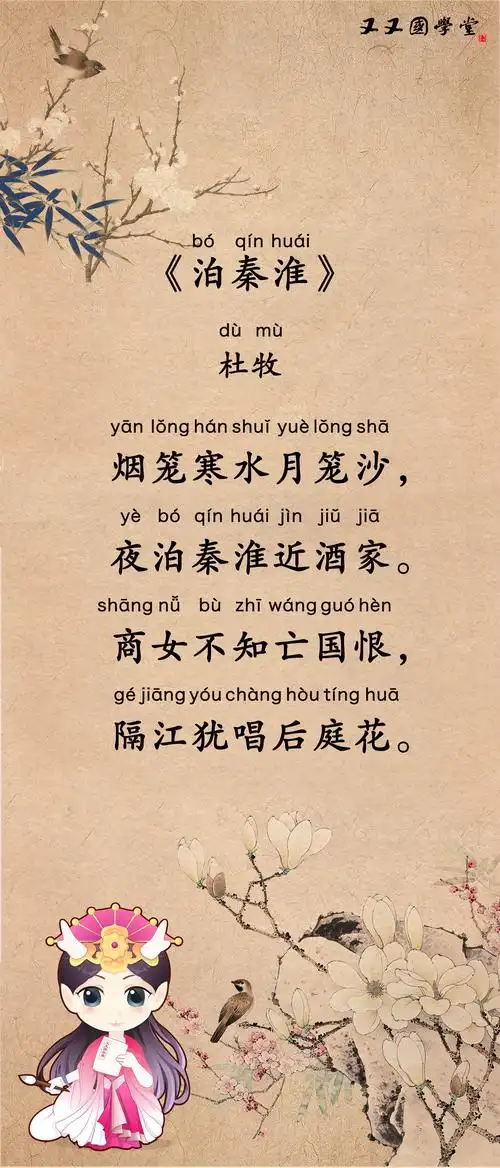 又又國學堂
bó qín huái
《泊秦淮》
dù mù
杜牧
yān lǒng hán shuǐ yuè lǒng shā
烟笼寒水月笼沙，
yè bó qín huái jìn jiǔ jiā
夜泊秦淮近酒家。
shāng nǚ bù zhī wáng guó hèn
商女不知亡国恨，
gé jiāng yóu chàng hòu tíng huā
隔江犹唱后庭花。